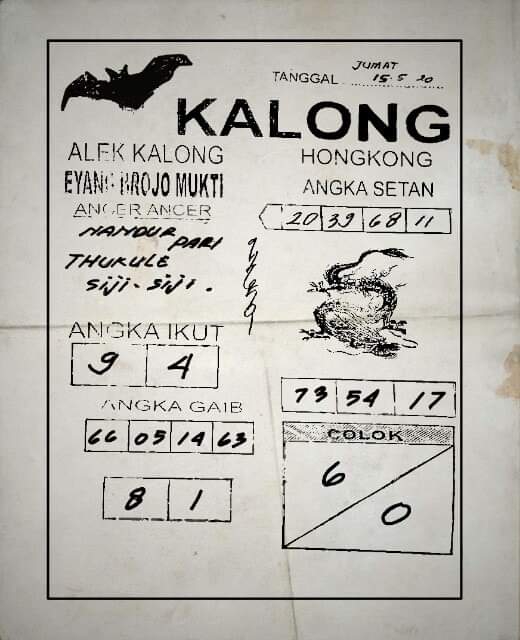 JUMAT
TANGGAL 15.5 20
KALONG
ALEK KALONG
EYANG BROJO MUKTI
ANCER ANCER
NANDUR
PARI
THUKULE
SIJI-SIJI.
HONGKONG
ANGKA SETAN
20 39 68 11
ANGKA IKUT
9 4
ANGKA GAIB
66 05 14 63
8 1
73 54 17
COLOK
6
0